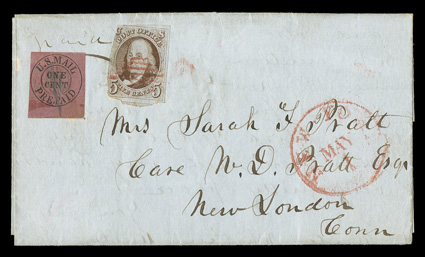 Paid
U.S. MAIL
ONE
CENT
PRE-PAID
POST OFFICE
5 5
Mrs Sarah F Pratt
Care W. D. Pratt Esq
New London
Conn
MAY